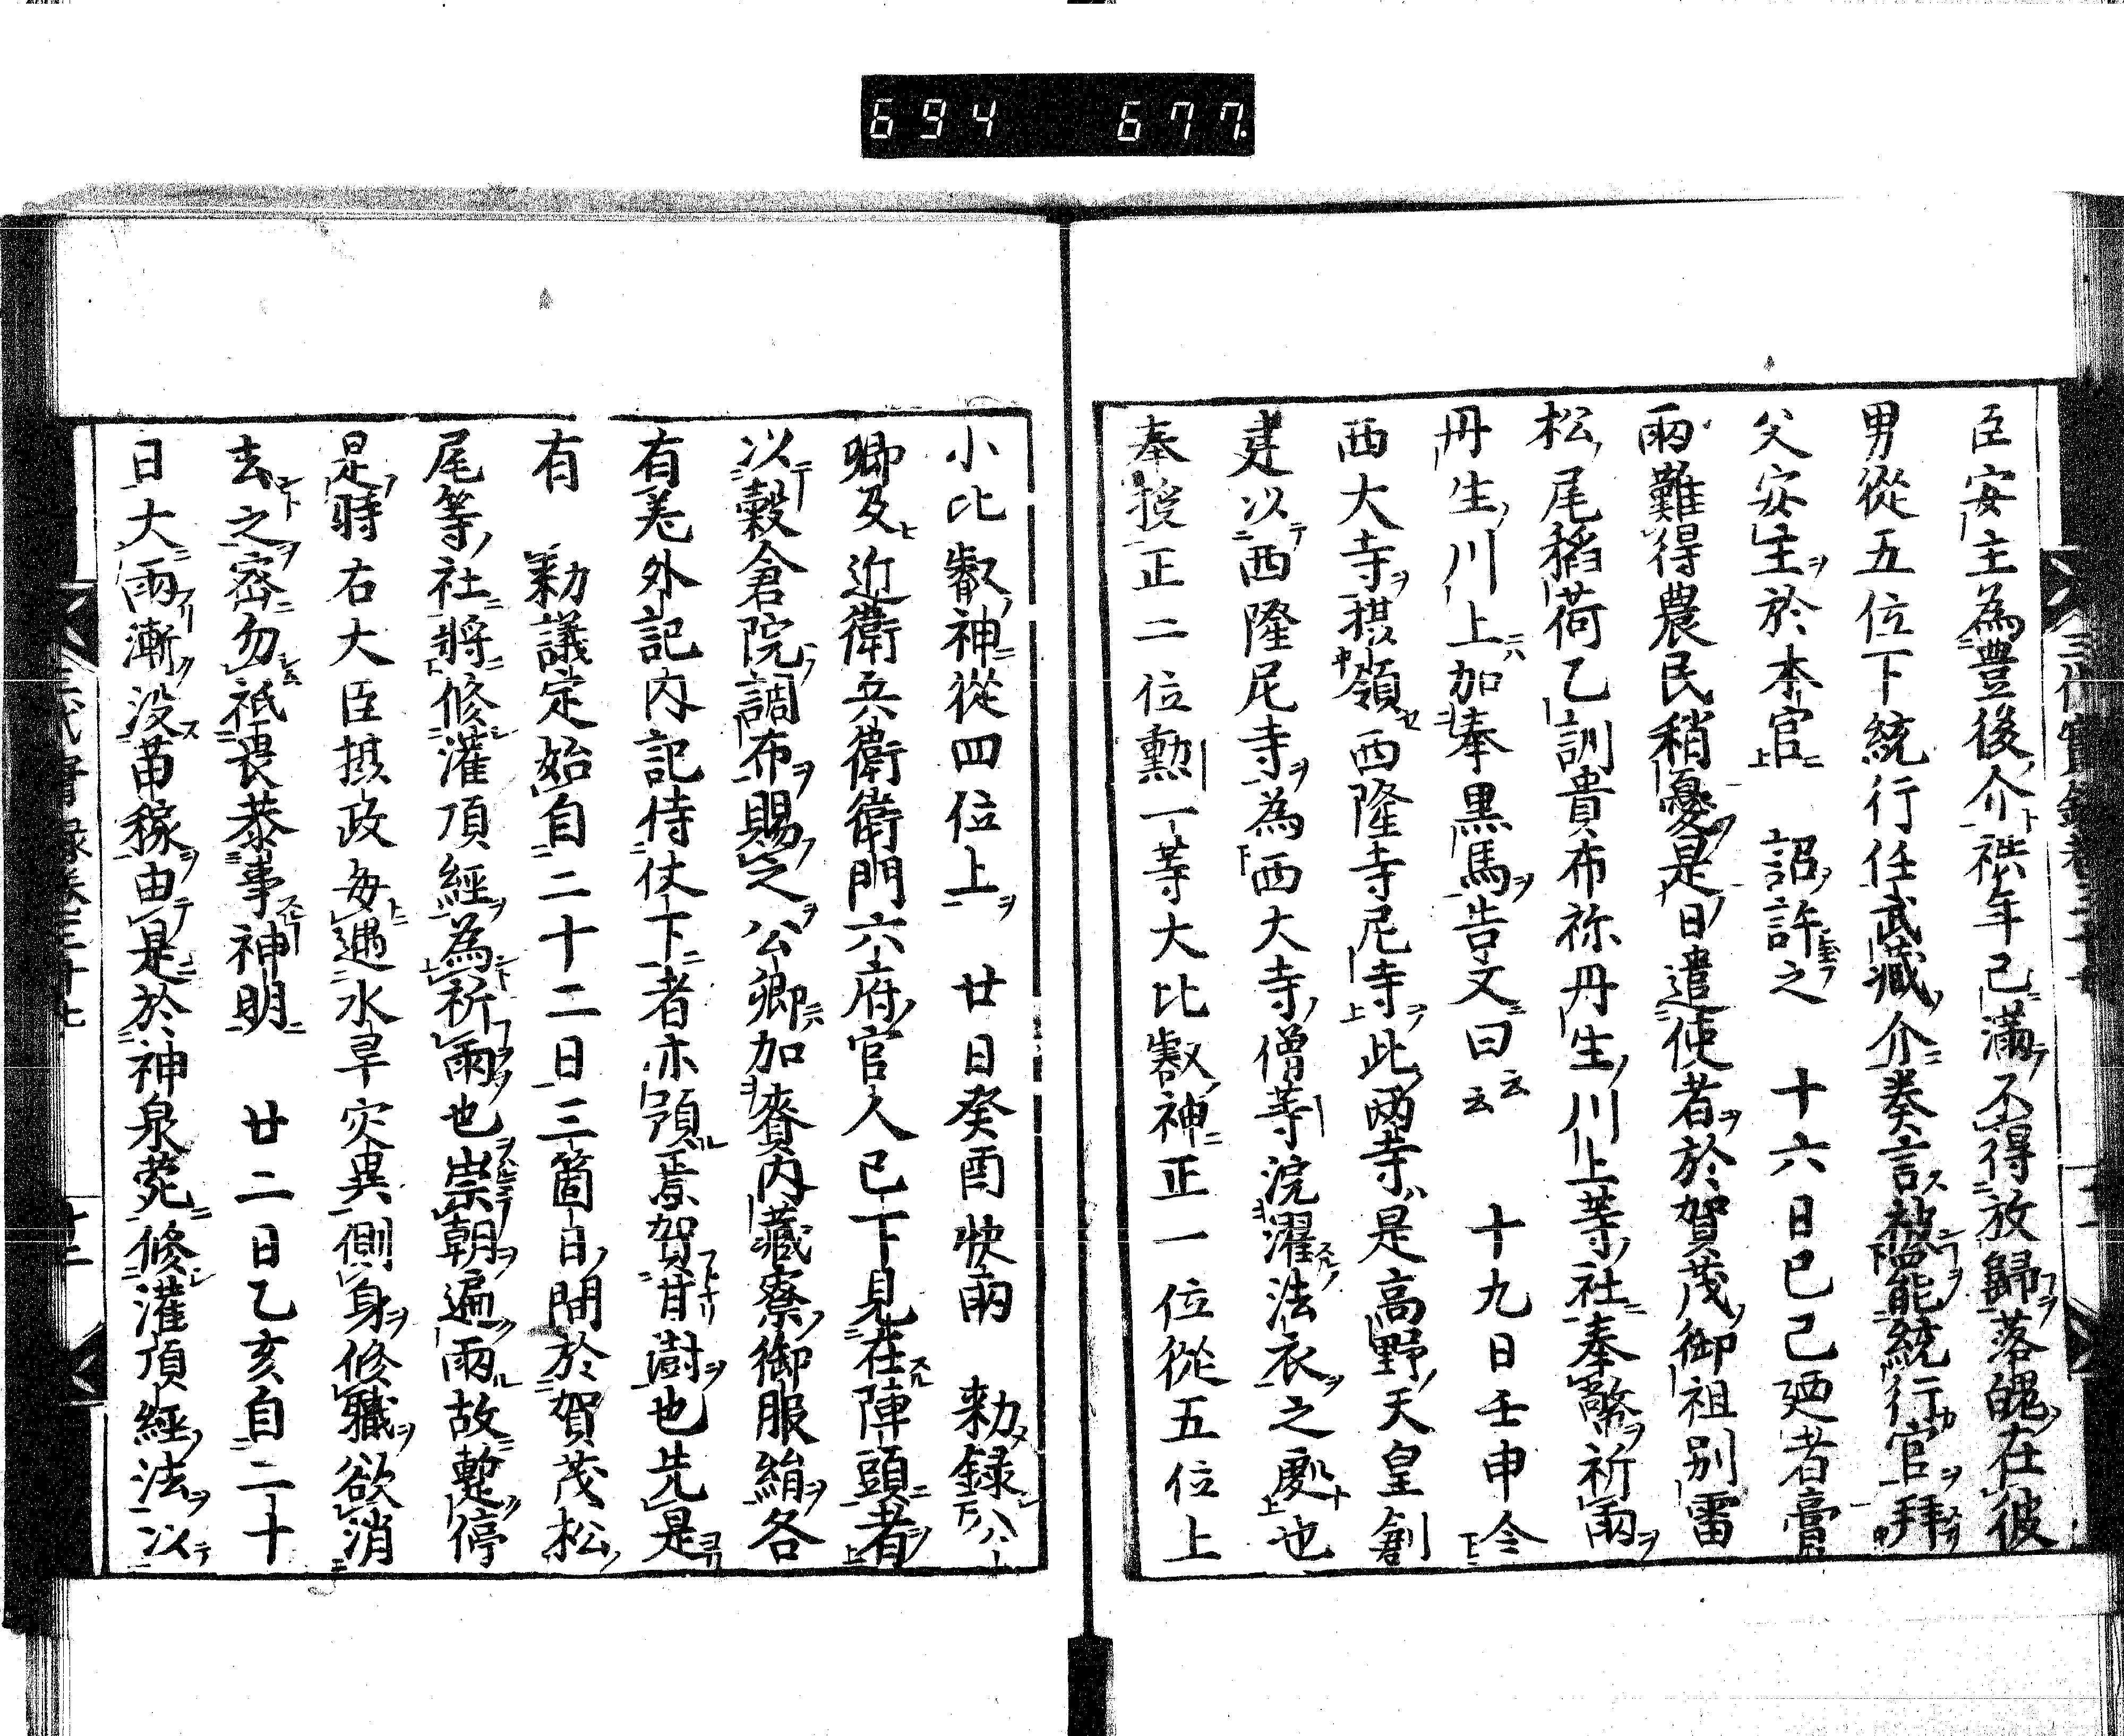 694 677
臣安主為豊後介祑年已滿不得放歸落魄在彼
男從五位下統行任武藏介奏言被罷能統行官拜
父安主於本官 詔許之 十六日已己廼者膏
雨難得農民稍憂是日遣使者於賀茂御祖別雷
松尾稻荷乙訓貴布祢丹生川上等社奉幣祈雨
丹生川上加奉黒馬告文曰云云 十九日壬申令
西大寺摂領西隆寺尼寺此兩寺是高野天皇創
建以西隆尼寺為西大寺僧等浣濯法衣之處也
奉授正二位勲一等大比叡神正一位從五位上
小比叡神從四位上 廿日癸酉快雨 勅録公
卿及近衛兵衛衛門六府官人已下見在陣頭者
以穀倉院調布賜之公卿加賚内藏寮御服絹各
有差外記内記侍仗下者亦預焉賀甘澍也先是
有 勅議定始自二十二日三箇日間於賀茂松
尾等社將修灌頂經為祈雨也崇朝遍雨故蹔停
是時右大臣摂政毎遇水旱灾異側身修職欲消
去之密勿祇畏恭事神明 廿二日乙亥自二十
日大雨漸没苗稼由是於神泉菀修灌頂經法以